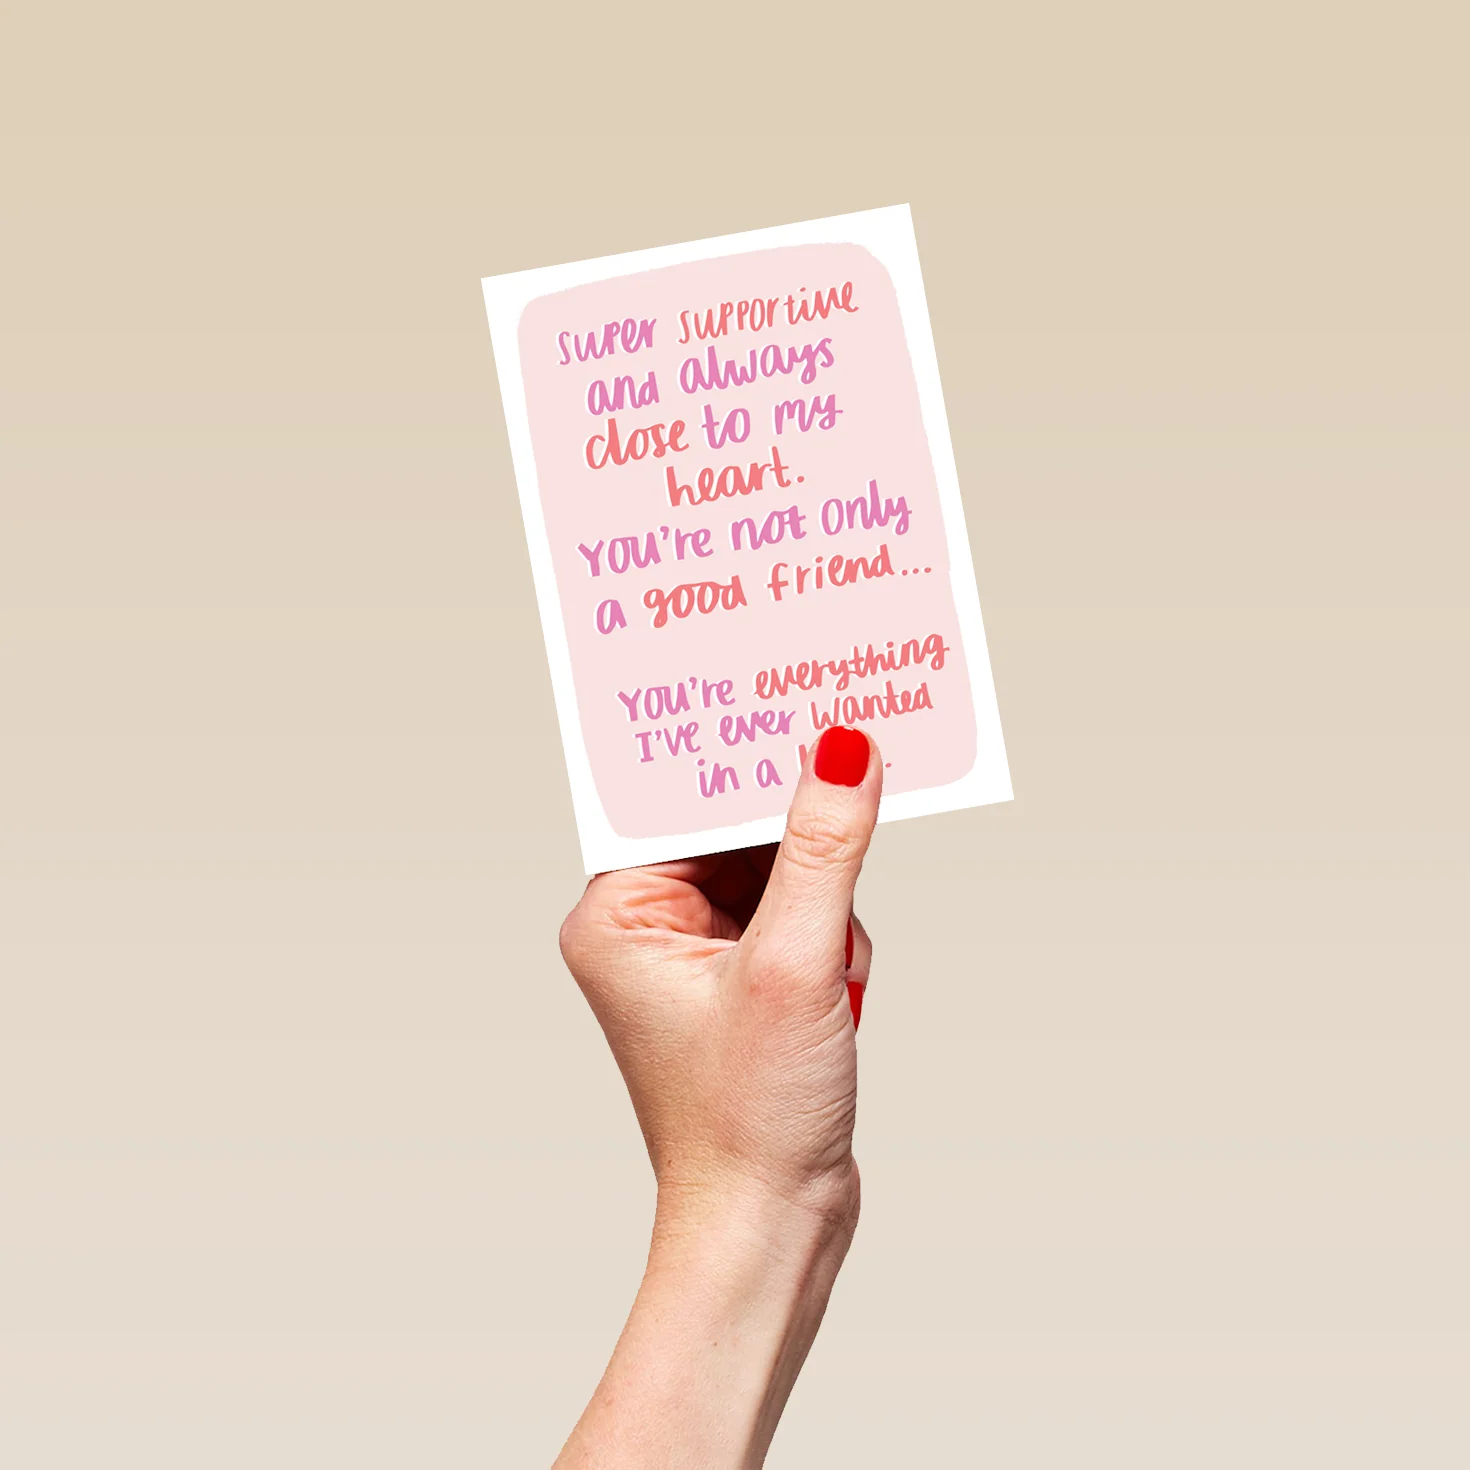 super supportive
and always
close to my
heart.
You're not only
a good friend...
You're everything
I've ever wanted
in a